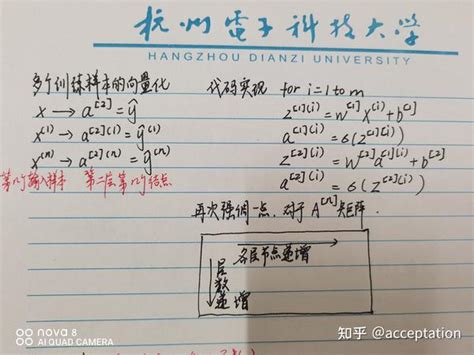 杭州電子科技大学
HANGZHOU DIANZI UNIVERSITY
多个训练样本的向量化
x → a^[2] = ŷ
x^(1) → a^[2](1) = ŷ^(1)
x^(n) → a^[2](n) = ŷ^(n)
第n个输入样本 第二层第n个结点
代码实现 for i=1 to m
z^[1](i) = w^[1] x^(i) + b^[1]
a^[1](i) = σ(z^[1](i))
z^[2](i) = w^[2] a^[1](i) + b^[2]
a^[2](i) = σ(z^[2](i))
再次强调一点,对于 A^[n] 矩阵.
各层节点递增
层数递增
nova 8
AI QUAD CAMERA
知乎 @acceptation